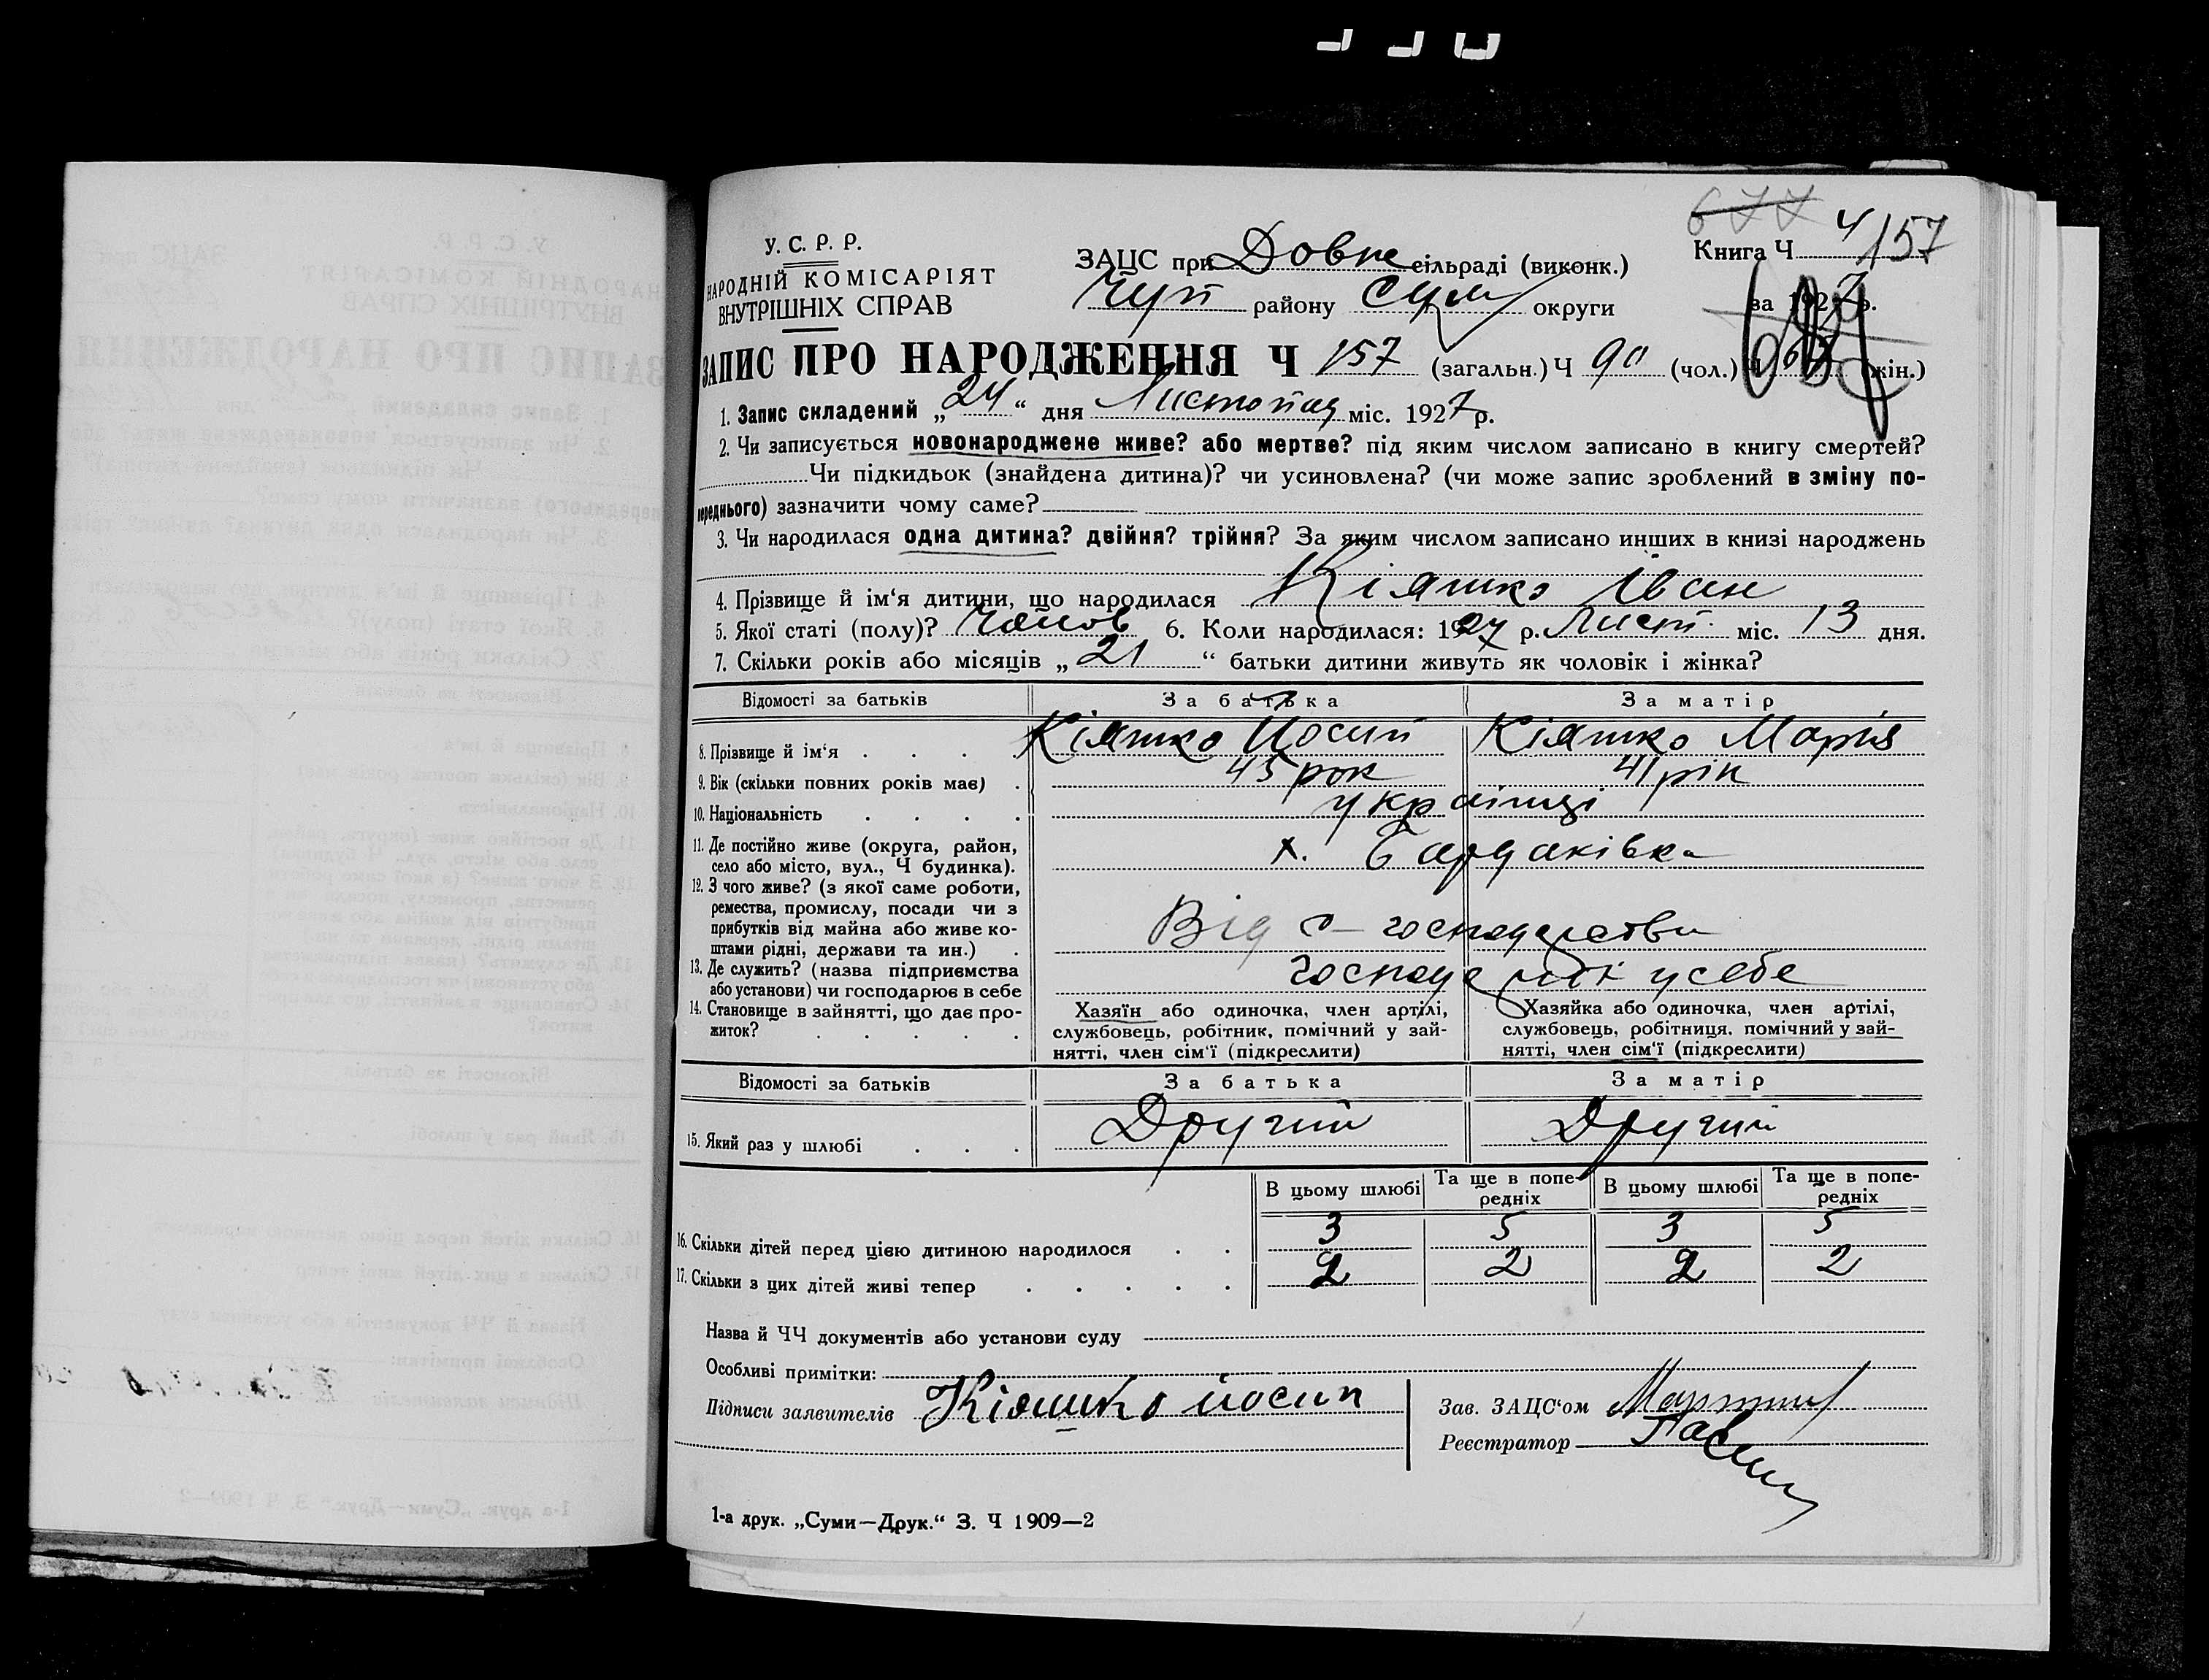 677 4/157
У. С. Р. Р.
НАРОДНІЙ КОМІСАРІЯТ
ВНУТРІШНІХ СПРАВ
ЗАЦС при Довже сільраді (виконк.)
Чуп району Сум округи
Книга Ч
за 1927 р.
ЗАПИС ПРО НАРОДЖЕННЯ Ч 157 (загальн.) Ч 90 (чол.) Ч (жін.)
1. Запис складений „24“ дня Листопад міс. 1927 р.
2. Чи записується новонароджене живе? або мертве? під яким числом записано в книгу смертей?
Чи підкидьок (знайдена дитина)? чи усиновлена? (чи може запис зроблений в зміну по-
переднього) зазначити чому саме?
3. Чи народилася одна дитина? двійня? трійня? За яким числом записано инших в книзі народжень
4. Прізвище й ім'я дитини, що народилася Кіяшко Іван
5. Якої статі (полу)? Чолов 6. Коли народилася: 1927 р. Лист. міс. 13 дня.
7. Скільки років або місяців „21“ батьки дитини живуть як чоловік і жінка?
Відомості за батьків За батька За матір
8. Прізвище й ім'я Кіяшко Йосип Кіяшко Марія
9. Вік (скільки повних років має) 45 рок 41 рік
10. Національність українці
11. Де постійно живе (округа, район,
село або місто, вул., Ч будинка). х. Бардаківка
12. З чого живе? (з якої саме роботи,
ремества, промислу, посади чи з
прибутків від майна або живе ко-
штами рідні, держави та ин.) Від с-господарства
13. Де служить? (назва підприємства
або установи) чи господарює в себе у себе
14. Становище в зайнятті, що дає про-
житок?
Хазяїн або одиночка, член артілі,
службовець, робітник, помічний у зай-
нятті, член сім'ї (підкреслити)
Хазяйка або одиночка, член артілі,
службовець, робітниця, помічний у зай-
нятті, член сім'ї (підкреслити)
Відомості за батьків За батька За матір
15. Який раз у шлюбі Другий Другий
В цьому шлюбі Та ще в попе-редніх В цьому шлюбі Та ще в попе-редніх
16. Скільки дітей перед цією дитиною народилося 3 5 3 5
17. Скільки з цих дітей живі тепер 2 2 2 2
Назва й ЧЧ документів або установи суду
Особливі примітки:
Підписи заявителів Кіяшко йосип
Зав. ЗАЦС'ом
Реєстратор
1-а друк. „Суми—Друк.“ З. Ч 1909—2